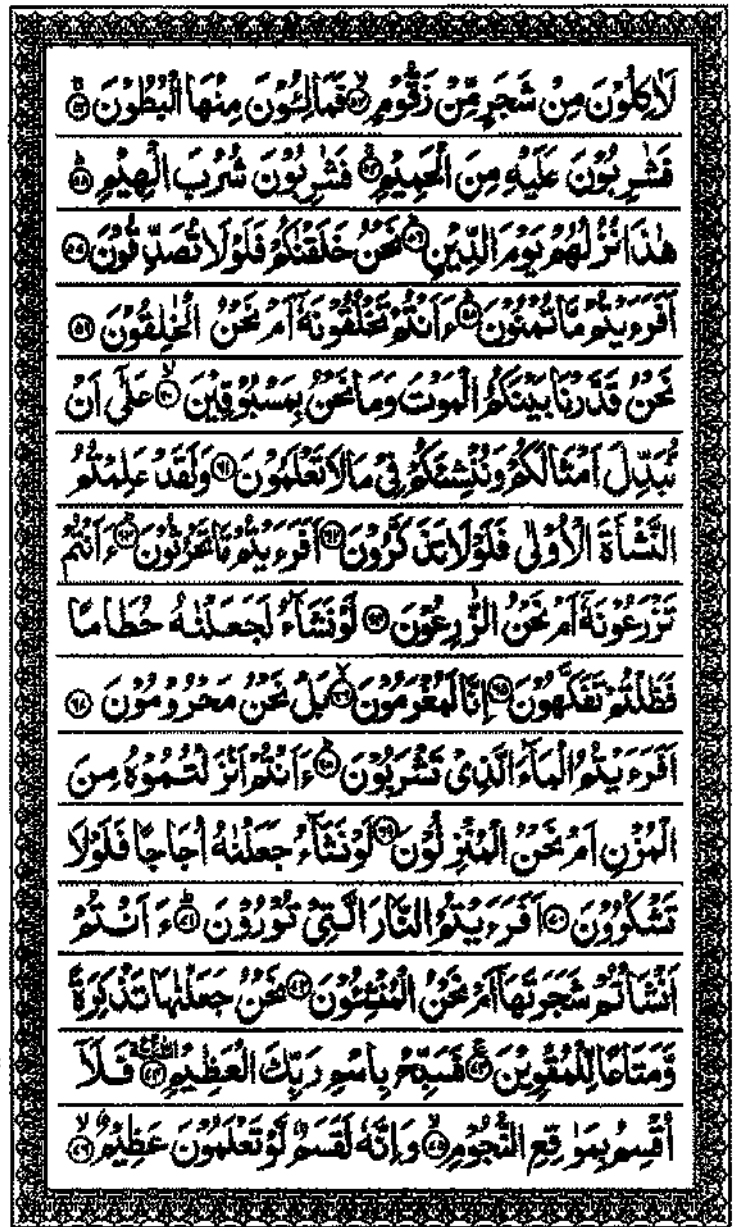 لَاٰكِلُوْنَ مِنْ شَجَرٍ مِّنْ زَقُّوْمٍ ۙ﴿۵۲﴾ فَمَالِـُٔوْنَ مِنْهَا الْبُطُوْنَ ۚ﴿۵۳﴾
فَشٰرِبُوْنَ عَلَيْهِ مِنَ الْحَمِيْمِ ۚ﴿۵۴﴾ فَشٰرِبُوْنَ شُرْبَ الْهِيْمِ ؕ﴿۵۵﴾
هٰذَا نُزُلُهُمْ يَوْمَ الدِّيْنِ ؕ﴿۵۶﴾ نَحْنُ خَلَقْنٰكُمْ فَلَوْلَا تُصَدِّقُوْنَ ﴿۵۷﴾
اَفَرَءَيْتُمْ مَّا تُمْنُوْنَ ؕ﴿۵۸﴾ ءَاَنْتُمْ تَخْلُقُوْنَهٗۤ اَمْ نَحْنُ الْخٰلِقُوْنَ ﴿۵۹﴾
نَحْنُ قَدَّرْنَا بَيْنَكُمُ الْمَوْتَ وَمَا نَحْنُ بِمَسْبُوْقِيْنَ ۙ﴿۶۰﴾ عَلٰۤى اَنْ
نُّبَدِّلَ اَمْثَالَكُمْ وَنُنْشِئَكُمْ فِيْ مَا لَا تَعْلَمُوْنَ ﴿۶۱﴾ وَلَقَدْ عَلِمْتُمُ
النَّشْاَةَ الْاُوْلٰى فَلَوْلَا تَذَكَّرُوْنَ ﴿۶۲﴾ اَفَرَءَيْتُمْ مَّا تَحْرُثُوْنَ ؕ﴿۶۳﴾ ءَاَنْتُمْ
تَزْرَعُوْنَهٗۤ اَمْ نَحْنُ الزّٰرِعُوْنَ ﴿۶۴﴾ لَوْ نَشَآءُ لَجَعَلْنٰهُ حُطَامًا
فَظَلْتُمْ تَفَكَّهُوْنَ ﴿۶۵﴾ اِنَّا لَمُغْرَمُوْنَ ۙ﴿۶۶﴾ بَلْ نَحْنُ مَحْرُوْمُوْنَ ﴿۶۷﴾
اَفَرَءَيْتُمُ الْمَآءَ الَّذِيْ تَشْرَبُوْنَ ؕ﴿۶۸﴾ ءَاَنْتُمْ اَنْزَلْتُمُوْهُ مِنَ
الْمُزْنِ اَمْ نَحْنُ الْمُنْزِلُوْنَ ﴿۶۹﴾ لَوْ نَشَآءُ جَعَلْنٰهُ اُجَاجًا فَلَوْلَا
تَشْكُرُوْنَ ﴿۷۰﴾ اَفَرَءَيْتُمُ النَّارَ الَّتِيْ تُوْرُوْنَ ؕ﴿۷۱﴾ ءَاَنْتُمْ
اَنْشَاْتُمْ شَجَرَتَهَاۤ اَمْ نَحْنُ الْمُنْشِـُٔوْنَ ﴿۷۲﴾ نَحْنُ جَعَلْنٰهَا تَذْكِرَةً
وَّمَتَاعًا لِّلْمُقْوِيْنَ ۚ﴿۷۳﴾ فَسَبِّحْ بِاسْمِ رَبِّكَ الْعَظِيْمِ ﴿۷۴﴾ فَلَاۤ
اُقْسِمُ بِمَوٰقِعِ النُّجُوْمِ ۙ﴿۷۵﴾ وَاِنَّهٗ لَقَسَمٌ لَّوْ تَعْلَمُوْنَ عَظِيْمٌ ۙ﴿۷۶﴾